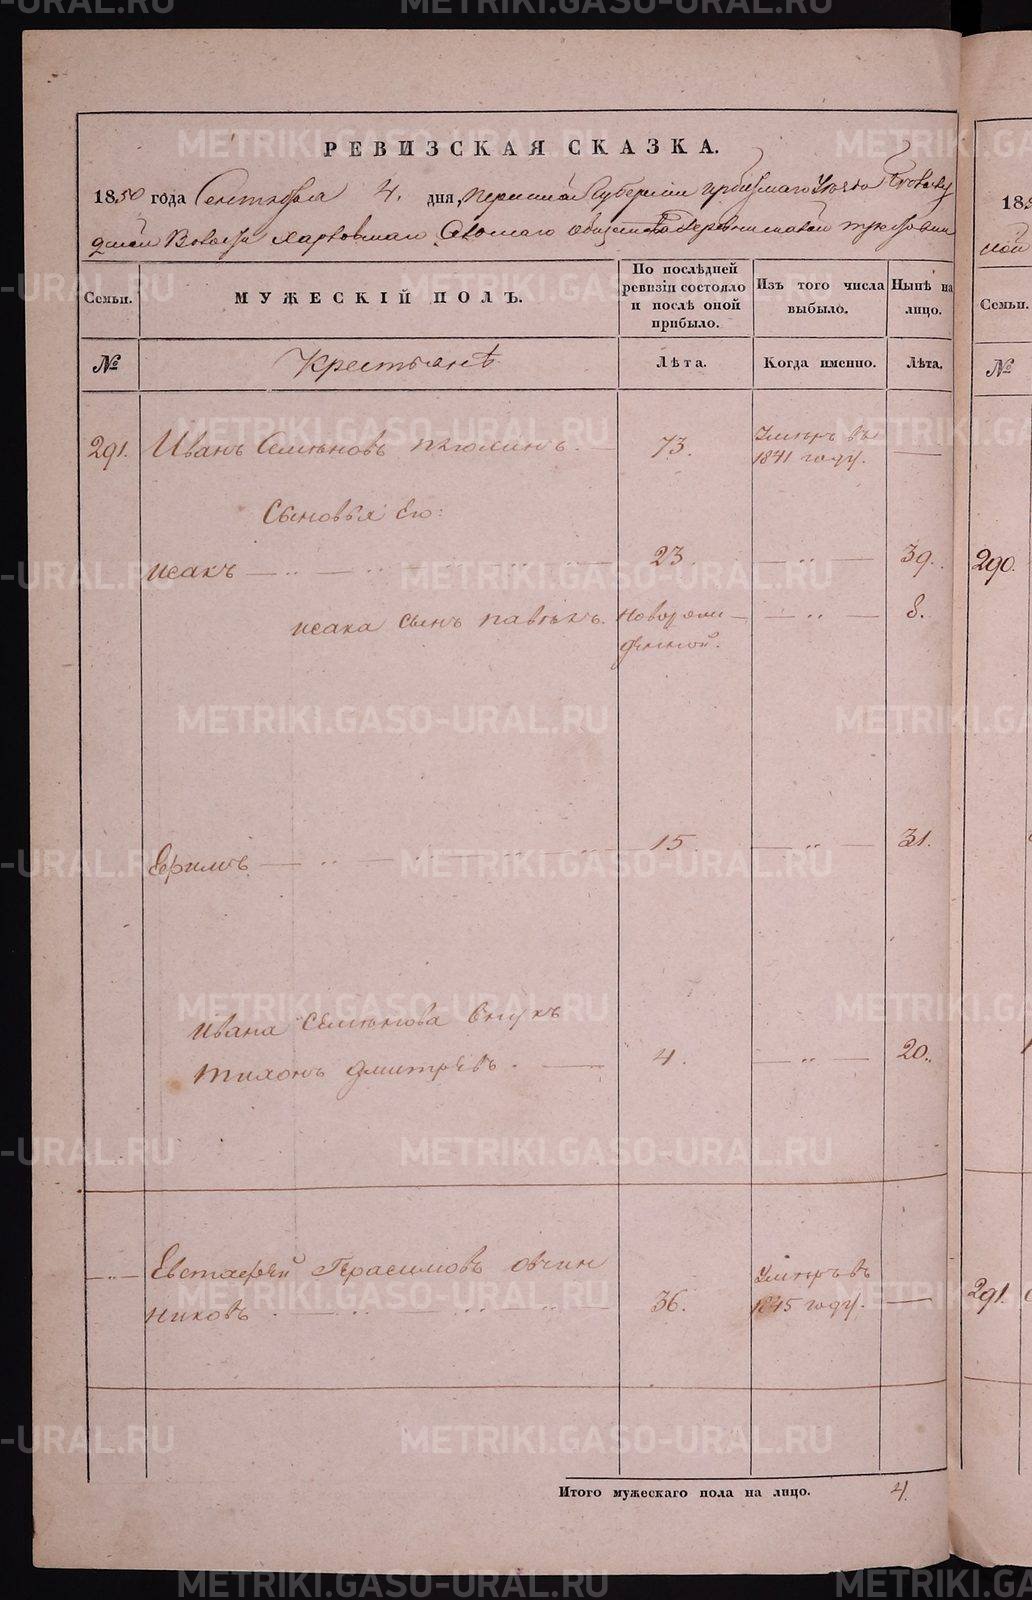 РЕВИЗСКАЯ СКАЗКА.
1850 года Сентября 4. дня, Пермской Губернии Ирбитскаго Уезда
Волости Харловскаго Сельскаго общества Деревни
Семьи. МУЖЕСКІЙ ПОЛЪ. По послѣдней ревизіи состояло и послѣ оной прибыло. Изъ того числа выбыло. Нынѣ на лицо.
№ Крестьянѣ Лѣта. Когда именно. Лѣта.
291. Иванъ Семѣновъ 73. Умѣръ въ 1841 году.
Сыновья Его:
Исакъ 23. 39.
Исака сынъ Павѣлъ. Новорожденной. 8.
Ефимъ 15. 31.
Ивана Семѣнова внукъ
Тихонъ Дмитрѣвъ. 4. 20.
Евстафѣй Герасимовъ Овчин
никовъ. 36. Умѣръ въ 1845 году.
Итого мужескаго пола на лицо. 4.
185
ской
Семьи.
№
290.
291.
METRIKI.GASO-URAL.RU